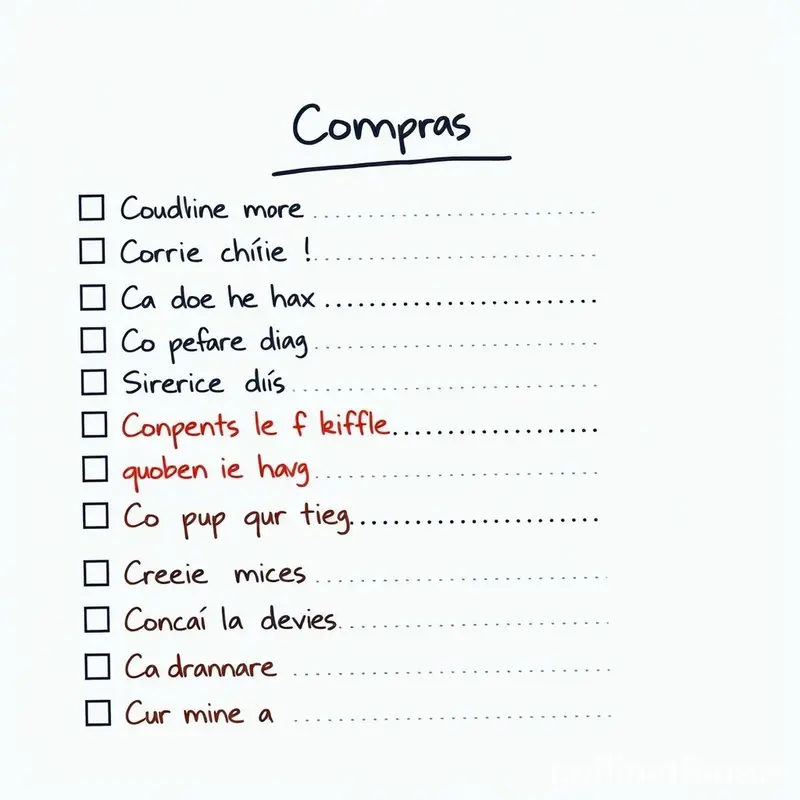 Compras
Coudline more
Corrie chíīie !
Ca doe he hax
Co pefare diag
Sirerice diís
Conpents le f kiffle
quoben ie havg
Co pup qur tieg.
Creeie mices
Concaí la devies
Ca drannare
Cur mine a